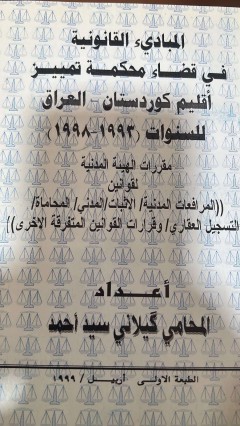 المبادىء القانونية
في قضاء محكمة تمييز
أقليم كوردستان - العراق
للسنوات (١٩٩٣-١٩٩٨)
مقررات الهيئة المدنية
لقوانين
((المرافعات المدنية/ الاثبات/المدني/ المحاماة/
التسجيل العقاري/ وقرارات القوانين المتفرقة الاخرى))
أعداد
المحامي گيلاني سيد أحمد
الطبعة الاولى - أربيل / ١٩٩٩